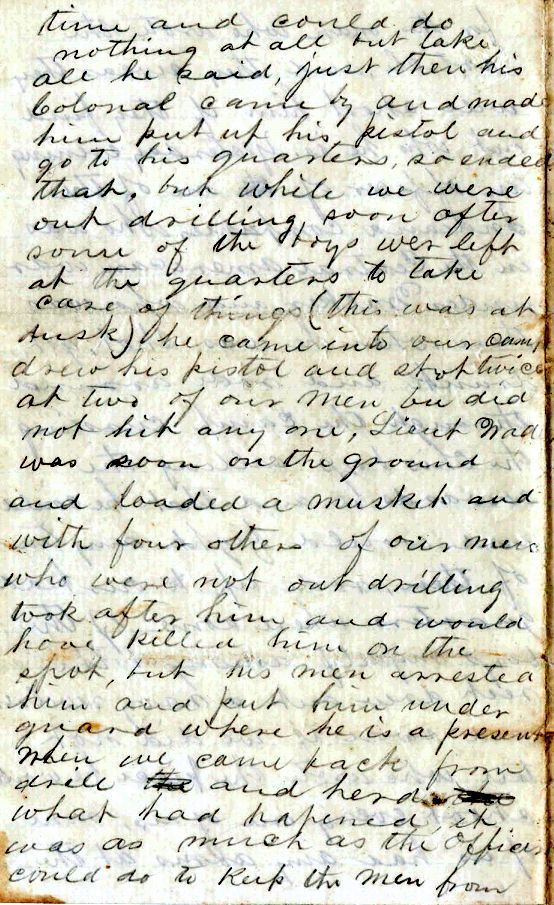 time and could do
nothing at all but take
all he said, just then his
Colonal came by and made
him put up his pistol and
go to his quarters, so ended
that, but while we were
out drilling soon after
some of the boys wer left
at the quarters to take
care of things (this was at
dusk) he came into our camp
drew his pistol and shot twice
at two of our men bu did
not hit any one, Lieut Wad
was soon on the ground
and loaded a musket and
with four others of our men
who were not out drilling
took after him and would
have killed him on the
spot, but his men arrested
him and put him under
guard where he is a present
When we came back from
drill the and herd the
what had hapened, it
was as much as the Officers
could do to keep the men from